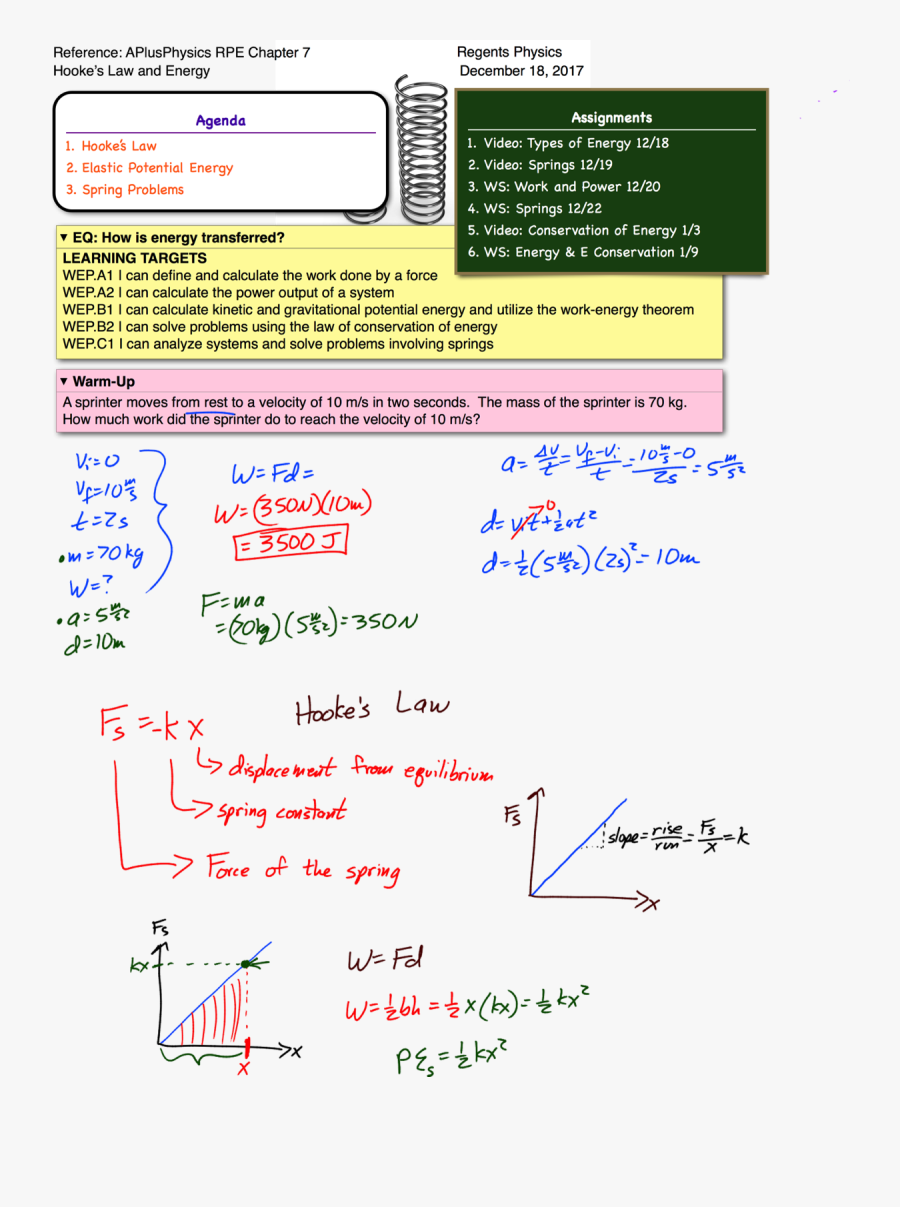 Reference: APlusPhysics RPE Chapter 7
Hooke's Law and Energy
Regents Physics
December 18, 2017
Agenda
1. Hooke's Law
2. Elastic Potential Energy
3. Spring Problems
Assignments
1. Video: Types of Energy 12/18
2. Video: Springs 12/19
3. WS: Work and Power 12/20
4. WS: Springs 12/22
5. Video: Conservation of Energy 1/3
6. WS: Energy & E Conservation 1/9
▼ EQ: How is energy transferred?
LEARNING TARGETS
WEP.A1 I can define and calculate the work done by a force
WEP.A2 I can calculate the power output of a system
WEP.B1 I can calculate kinetic and gravitational potential energy and utilize the work-energy theorem
WEP.B2 I can solve problems using the law of conservation of energy
WEP.C1 I can analyze systems and solve problems involving springs
▼ Warm-Up
A sprinter moves from rest to a velocity of 10 m/s in two seconds. The mass of the sprinter is 70 kg.
How much work did the sprinter do to reach the velocity of 10 m/s?
Vi=0
Vf=10 m/s
t=2s
•m=70kg
W=?
•a=5 m/s²
d=10m
W=Fd=
W=(350N)(10m)
=3500 J
F=ma
=(70kg)(5 m/s²)=350N
a=Δv/t=(Vf-Vi)/t=(10 m/s-0)/2s=5 m/s²
d=vit→0+½at²
d=½(5 m/s²)(2s)²=10m
Hooke's Law
Fs=-kx
displacement from equilibrium
spring constant
Force of the spring
Fs
slope=rise/run=Fs/x=k
x
Fs
kx
x
x
W=Fd
W=½bh=½x(kx)=½kx²
PEs=½kx²